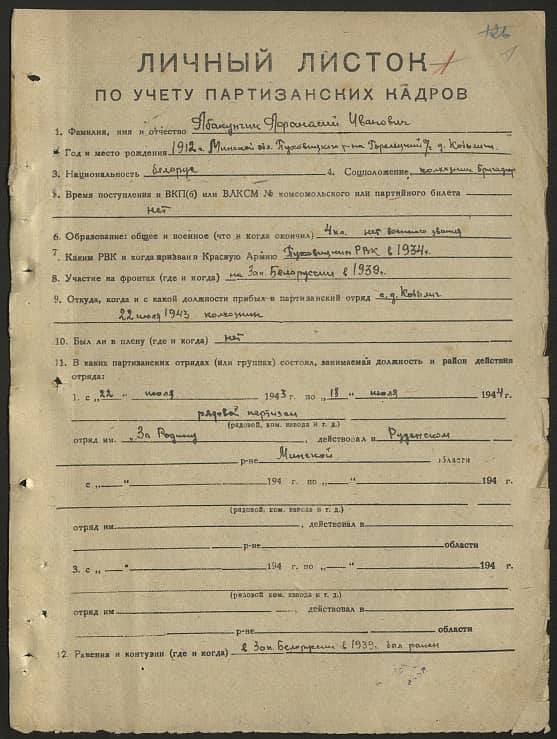 126
1
ЛИЧНЫЙ ЛИСТОК 1
ПО УЧЕТУ ПАРТИЗАНСКИХ КАДРОВ
1. Фамилия, имя и отчество Абакунчик Афанасий Иванович
2. Год и место рождения 1912 г. Минской обл. Пуховицкого р-на Горелецкий с/с д. Ковыличи
3. Национальность белорус 4. Соцположение колхозник бригадир
5. Время поступления и ВКП(б) или ВЛКСМ № комсомольского или партийного билета
нет
6. Образование: общее и военное (что и когда окончил) 4 кл. нет военного звания
7. Каким РВК и когда призван в Красную Армию Пуховицким РВК в 1934 г.
8. Участие на фронтах (где и когда) на Зап. Белоруссии в 1939 г.
9. Откуда, когда и с какой должности прибыл в партизанский отряд с. д.
22 июля 1943 колхозник
10. Был ли в плену (где и когда) нет
11. В каких партизанских отрядах (или группах) состоял, занимаемая должность и район действия
отряда:
1. с „22 " июля 1943 г. по „18 " июля 1944 г.
рядовой партизан
(рядовой, ком. взвода и т. д.)
отряд им. „За Родину , действовал в Руденском
р-не Минской области
с „ " 194 г. по „ " 194 г.
(рядовой, ком. взвода и т. д.)
отряд им. , действовал в
р-не области
3. с „ " 194 г. по „ " 194 г.
(рядовой, ком. взвода и т. д.)
отряд им , действовал в
р-не области
12. Ранения и контузии (где и когда) в Зап. Белоруссии в 1939 г. был ранен